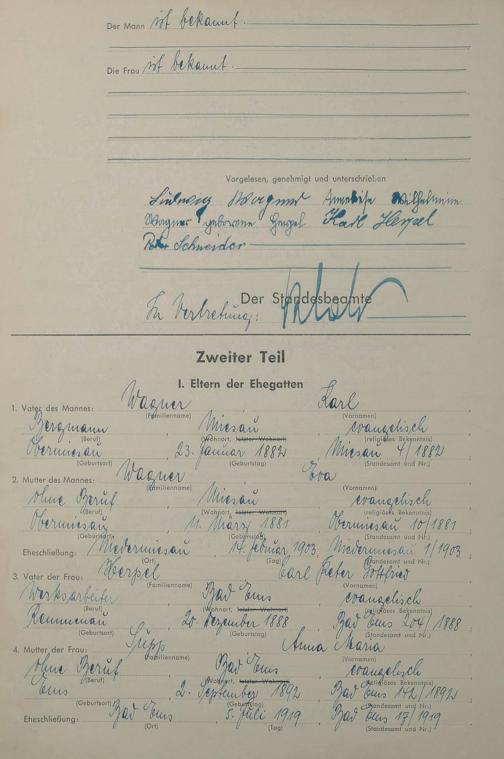 Der Mann ist bekannt.
Die Frau ist bekannt.
Vorgelesen, genehmigt und unterschrieben
Ludwig Wagner Annelise Wilhelmine
Wagner geborene Herpel Karl Herpel
Peter Schneider
Der Standesbeamte
In Vertretung:
Zweiter Teil
I. Eltern der Ehegatten
1. Vater des Mannes: Wagner Karl
(Familienname) (Vornamen)
Bergmann Miesau evangelisch
(Beruf) (Wohnort, letzter Wohnort) (religiöses Bekenntnis)
Obermiesau 23. Januar 1882 Miesau 4/1882
(Geburtsort) (Geburtstag) (Standesamt und Nr.)
2. Mutter des Mannes: Wagner Eva
(Familienname) (Vornamen)
ohne Beruf Miesau evangelisch
(Beruf) (Wohnort, letzter Wohnort) (religiöses Bekenntnis)
Obermiesau 11. März 1881 Obermiesau 10/1881
(Geburtsort) (Geburtstag) (Standesamt und Nr.)
Eheschließung: Niedermiesau 14. Februar 1903 Niedermiesau 1/1903
(Ort) (Tag) (Standesamt und Nr.)
3. Vater der Frau: Herpel Carl Peter Gottfried
(Familienname) (Vornamen)
Werksarbeiter Bad Ems evangelisch
(Beruf) (Wohnort, letzter Wohnort) (religiöses Bekenntnis)
20. Dezember 1888 Bad Ems 204/1888
(Geburtsort) (Geburtstag) (Standesamt und Nr.)
4. Mutter der Frau: Anna Maria
(Familienname) (Vornamen)
ohne Beruf Bad Ems evangelisch
(Beruf) (Wohnort, letzter Wohnort) (religiöses Bekenntnis)
Ems 2. September 1892 Bad Ems 142/1892
(Geburtsort) (Geburtstag) (Standesamt und Nr.)
Eheschließung: Bad Ems 5. Juli 1919 Bad Ems 17/1919
(Ort) (Tag) (Standesamt und Nr.)